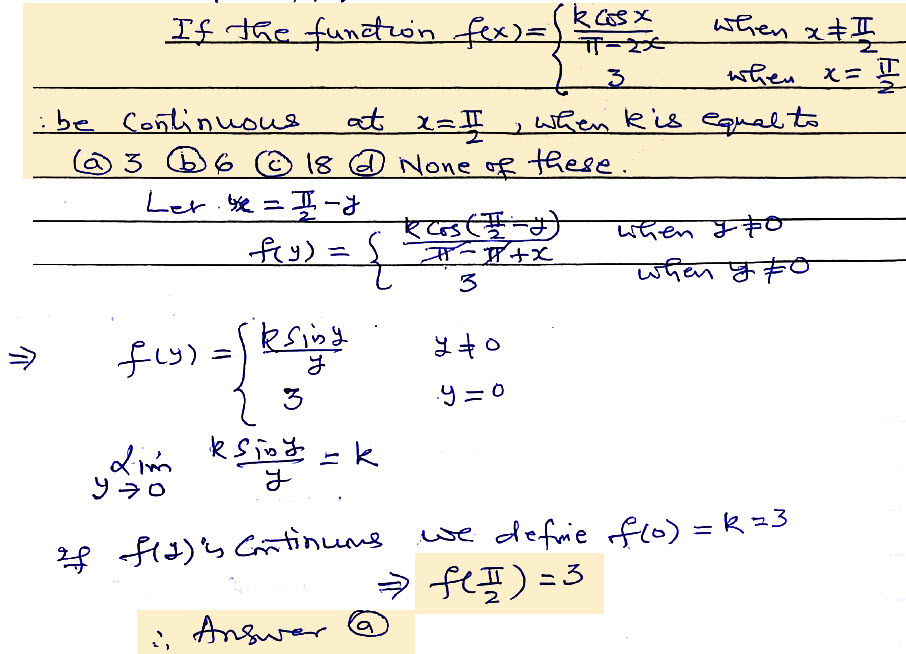 If the function f(x) = { k cos x / π - 2x when x ≠ π/2
3 when x = π/2
: be Continuous at x = π/2 , when k is equal to
(a) 3 (b) 6 (c) 18 (d) None of these.
Let x = π/2 - y
f(y) = { k cos(π/2 - y) / π - π + x when y ≠ 0
3 when y ≠ 0
⇒ f(y) = { k sin y / y y ≠ 0
3 y = 0
Lim y → 0 k sin y / y = k
If f(y) is Continuous we define f(0) = k = 3
⇒ f(π/2) = 3
∴ Answer (a)